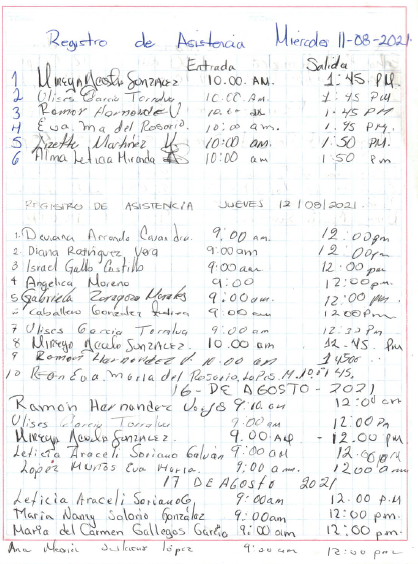 Registro de Asistencia Miercoles 11-08-2021
Entrada Salida
1 Mireya Acosta Gonzalez 10.00. AM. 1:45 PM.
2 Ulises Garcia Torralva 10:00 AM. 1:45 PM
3 Ramon Hernandez V 10:00 am 1:45 PM
4 Eva Ma del Rosario. 10:00 am. 1:45 PM.
5 Lizette Martinez 10:00 am. 1:50 PM.
6 Alma Leticia Miranda 10:00 am 1:50 Pm
REGISTRO DE ASISTENCIA JUEVES 12/08/2021.
1. Arronda 9:00 am. 12:00pm
2. Diana Rodriguez Vera 9:00am 12:00pm
3. Israel Gallo Castillo 9:00am 12:00 pm
4 Angelica Moreno 9:00 12:00pm.
5 Gabriela Zaragoza Morales 9:00am. 12:00 pm.
Caballero Gonzalez 9:00am 12:00Pm
7 Ulises Garcia Torralva 9:00 am 12:30 Pm
8 Mireya Acosta Gonzalez. 10.00 am 12.45. PM.
9 Ramon Hernandez V. 10.00 am
10 Eva. Maria del Rosario. Lopes. M.
16- DE AGOSTO - 2021
Ramon Hernandez 9:10 am 12:00
Ulises Garcia Torralva 9:00am 12:00 Pm
Mireya Acosta Gonzalez. 9.00.AM - 12.00 PM
Leticia Araceli Soriano Galvan 9:00am 12:00pm
Lopez Eva Maria. 9:00 am. 12:00 am
17 DE AGOSTO 2021
Leticia Araceli Soriano G, 9:00am 12:00 P.M
Maria Nancy Salorio González 9:00am 12:00 pm.
Maria del Carmen Gallegos Garcia 9:00am 12:00 pm.
Ana Maria López 9:00 am 12:00 pm